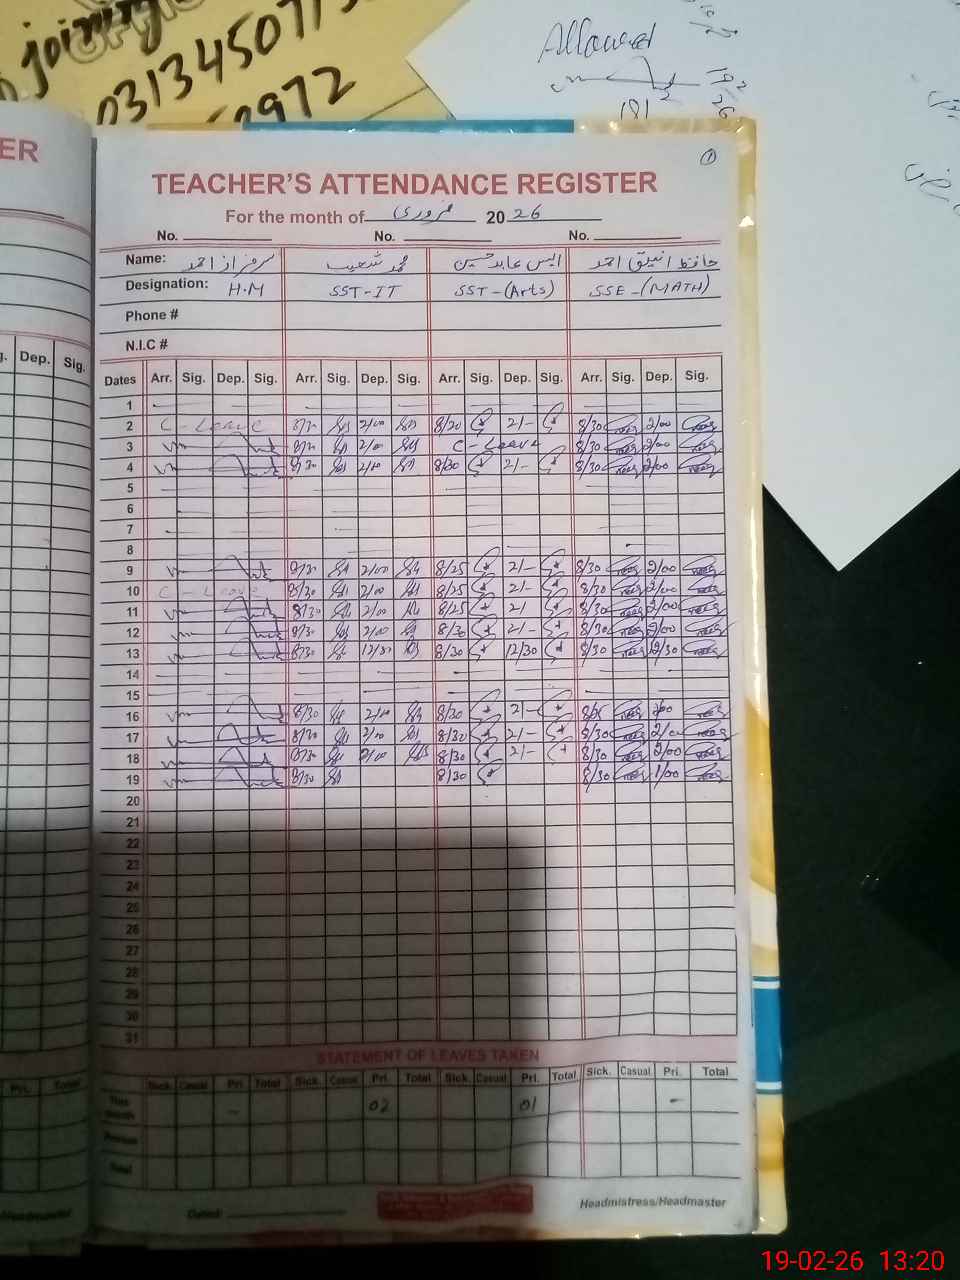 joining
03134507
0972
Allowed
19/2
26
ER
TEACHER'S ATTENDANCE REGISTER
For the month of فروری 20 26
No. No. No.
Name: سرفراز احمد محمد شعیب ایس عابد حسین حافظ انیق احمد
Designation: H.M SST-IT SST-(Arts) SSE-(MATH)
Phone #
N.I.C #
Dep. Sig.
Dates Arr. Sig. Dep. Sig. Arr. Sig. Dep. Sig. Arr. Sig. Dep. Sig. Arr. Sig. Dep. Sig.
1
2 C-Leave 2/00 8/20 2/- 8/30 2/00
3 2/00 C-Leave 8/30 2/00
4 8/30 2/00 8/30 2/- 8/30 2/00
5
6
7
8
9 8/30 2/00 8/25 2/- 8/30 2/00
10 C-Leave 8/30 2/00 8/25 2/- 8/30 2/00
11 8/30 2/00 8/25 2/ 8/30 2/00
12 8/30 2/00 8/30 2/- 8/30 2/00
13 8/30 12/30 8/30 12/30 8/30 12/30
14
15
16 8/30 2/00 8/30 2/- 8/25 2/00
17 8/30 2/00 8/30 2/- 8/30 2/0
18 8/30 2/00 8/30 2/- 8/30 2/00
19 8/30 8/30 8/30 1/00
20
21
22
23
24
25
26
27
28
29
30
31
STATEMENT OF LEAVES TAKEN
Pri. Total Sick. Casual Pri. Total Sick. Casual Pri. Total Sick. Casual Pri. Total Sick. Casual Pri. Total
This month - 02 01 -
Total
Dated: Headmistress/Headmaster
19-02-26 13:20